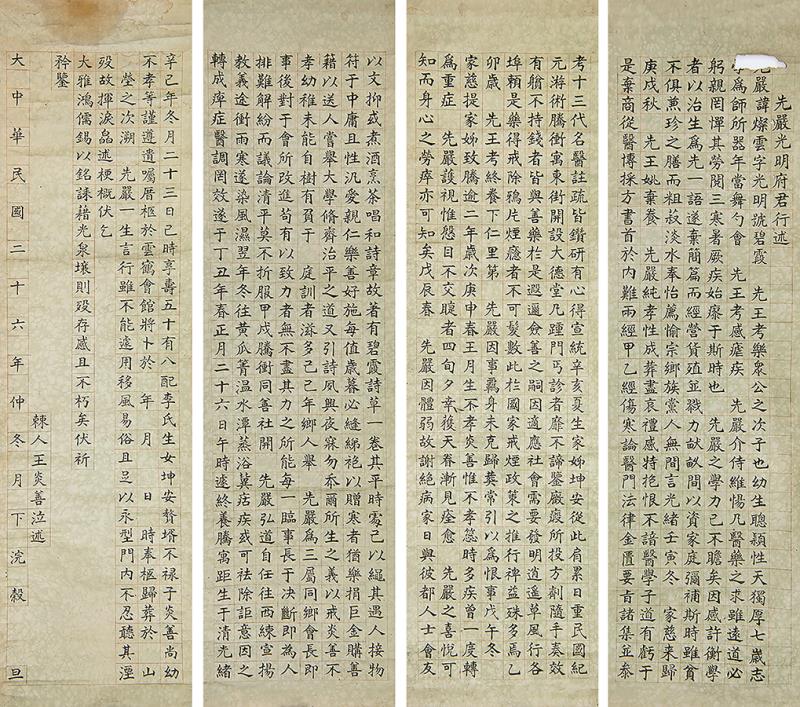 先嚴光明府君行述
先嚴諱燦雲字光明號碧霞 先王考樂衆公之次子也幼生聰穎性天獨厚七歲志
學爲師所器年當舞勺會 先王考感瘧疾 先嚴介侍維惕凡醫藥之求雖遠道必
躬親罔憚其勞閱三寒暑厥疾始瘳于斯時也 先嚴之學力已不贍矣因感許衡學
者以治生爲先一語遂棄簡篇而經營貨殖並戮力畎畝間以資家庭彌補斯時雖貧
不俱黄珍之膳而粗菽淡水奉怡薦愉宗鄉族黨人無間言光緒壬寅冬 家慈來歸
庚戌秋 先王妣棄養 先嚴純孝性成葬盡哀禮感特抱恨不諳醫學子道有虧于
是棄商從醫博採方書首於内難兩經甲乙經傷寒論醫門法律金匱要旨諸集並叅
考十三代名醫註疏皆鑽研有心得宣統辛亥夏生家姊坤安從此肩累日重民國紀
元游術騰衝寓東街開設大德堂凡踵門丐診者靡不諦鑒廠癥所投方劑隨手奏效
有貧不持錢者皆與善藥於是遐邇僉善之嗣因適應社會需要發明逍遙草風行各
埠賴是藥得戒除鴉片煙癮者不可髮數此於國家戒煙政策之推行裨益殊多焉乙
卯歲 先王考終養下仁里第 先嚴因事羈身未克歸葬常引以爲恨事戊午冬
家慈提家姊致騰逾二年歲次庚申春王月生不孝炎善惟不孝蕞時多疾曾一度轉
爲重症 先嚴護視惟慇目不交睫者四旬夕幸後天眷漸見痊愈 先嚴之喜悅可
知而身心之勞瘁亦可知矣戊辰春 先嚴因體弱故謝絶病家日與彼都人士會友
以文抑或煮酒烹茶唱和詩章故著有碧霞詩草一卷其平時處己以繩其遇人接物
符于中庸且性汎愛親仁樂善好施每值歲暮必縫綈袍以贈寒者猶樂捐巨金購善
藉以送人嘗舉大學脩齊治平之道又引詩夙興夜寐勿忝爾所生之義以戒炎善不
孝幼稚未能自樹有負于 庭訓者滋多己巳年鄉人舉 先嚴爲三屬同鄉會長即
事後對于會所改進苟有以致力者無不盡其力之所能每一臨事長于決斷即爲人
排難解紛而議論清平莫不折服甲戌騰衝同善社開 先嚴弘道自任往西練宣揚
教義途衝雨寒遂染風濕翌年冬往黄瓜箐温水潭蒸浴冀痁疾或可袪除詎意因之
轉成痺症醫調罔效遂于丁丑年春正月二十六日午時遽終養騰寓距生于清光緒
辛巳年冬月二十三日巳時享壽五十有八配李氏生女坤安贅壻不禄子炎善尚幼
不孝等謹遵遺囑厝柩於雲鶴會館將卜於 年 月 日 時奉柩歸葬於 山
塋之次溯 先嚴一生言行雖不能遽用移風易俗且足以永型門内不忍聽其湮
歿故揮淚縷述梗概伏乞
大雅鴻儒錫以銘誄藉光泉壤則歿存感且不朽矣伏祈
矜鑒
棘人王炎善泣述
大中華民國二十六年仲冬月下浣穀旦